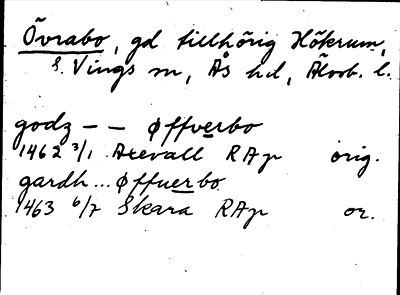 Övrabo, gd tillhörig Hökrum,
S. Vings sn, Ås hd, Älvsb. l.
godz – – øffverbo
1462 3/1 Axevall RAp orig.
gardh... øffuerbo
1463 6/7 Skara RAp or.